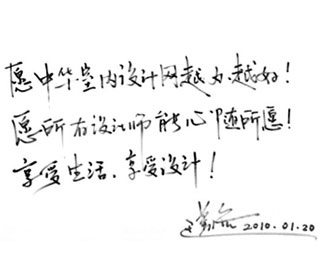 愿中华室内设计网越办越好！
愿所有设计师能心随所愿！
享受生活，享受设计！
2010.01.20